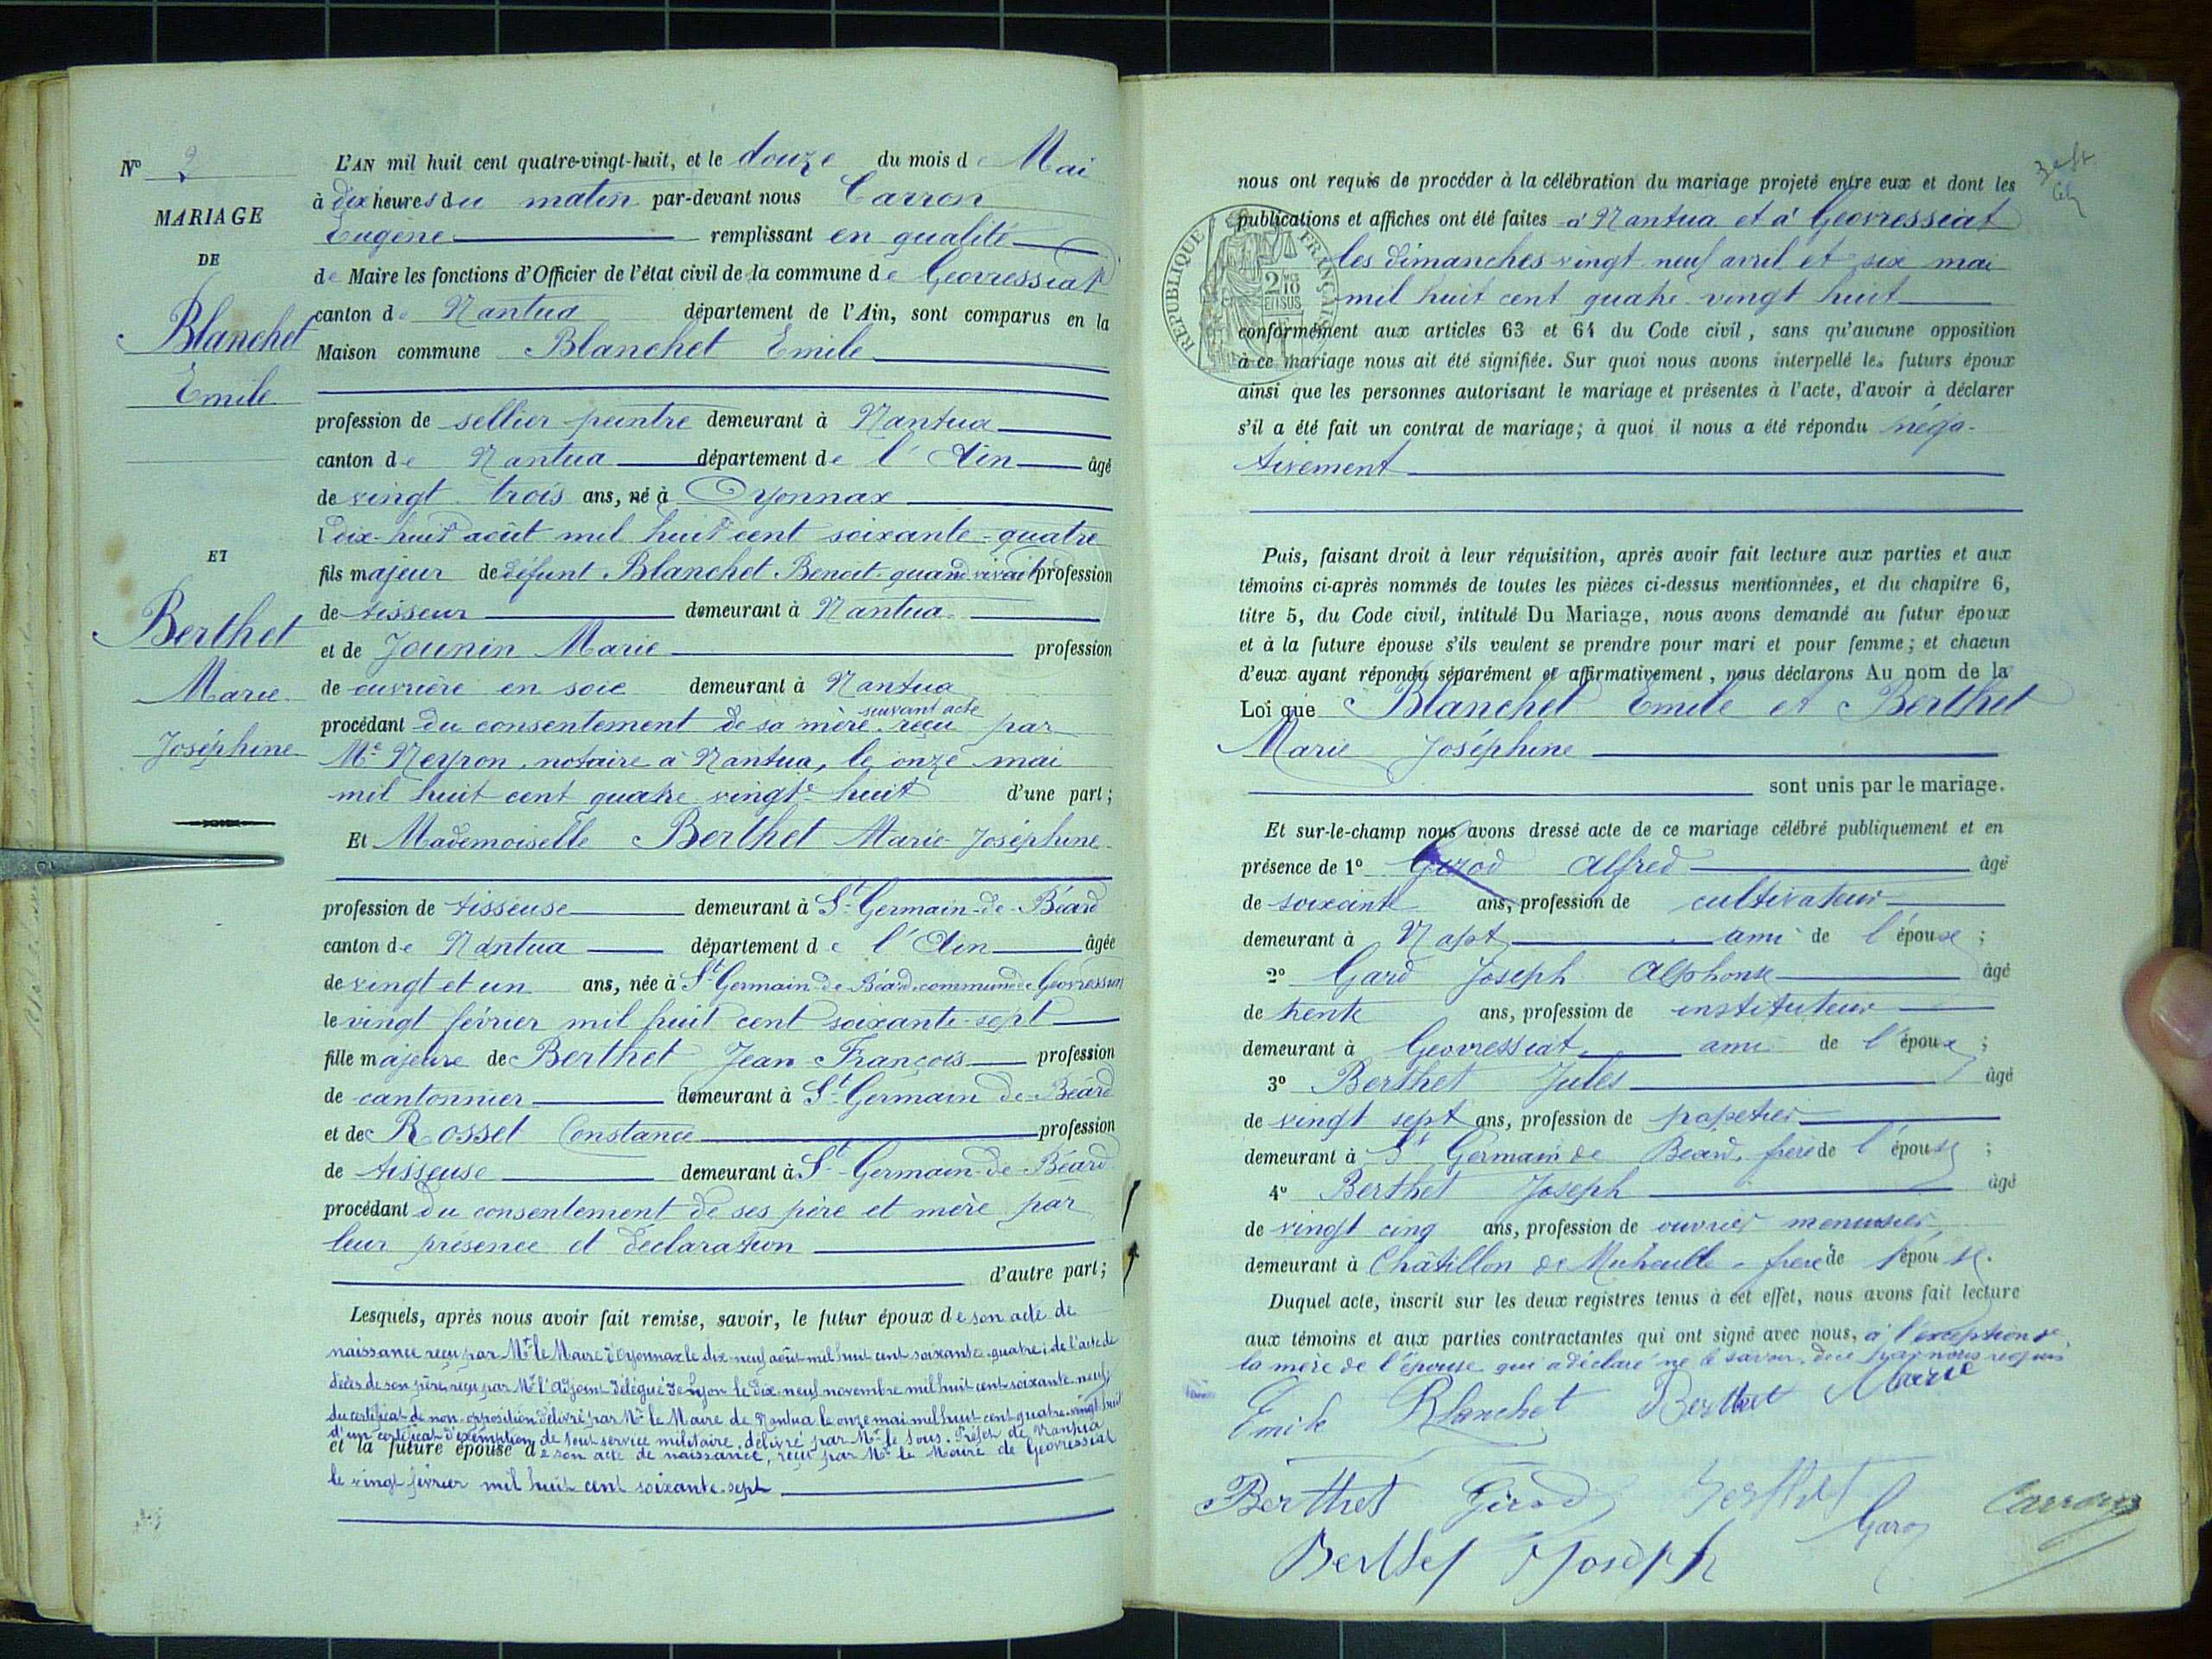 N° 2
MARIAGE
DE
Blanchet
Emile
ET
Berthet
Marie
Joséphine
L'AN mil huit cent quatre-vingt-huit, et le douze du mois de Mai
à dix heures du matin par-devant nous Carron
Eugène remplissant en qualité
de Maire les fonctions d'Officier de l'état civil de la commune de Geovressiat
canton de Nantua département de l'Ain, sont comparus en la
Maison commune Blanchet Emile
profession de sellier peintre demeurant à Nantua
canton de Nantua département de l'Ain âgé
de vingt trois ans, né à Oyonnax
l dix-huit août mil huit cent soixante-quatre
fils majeur de défunt Blanchet Benoit quand vivait profession
de tisseur demeurant à Nantua
et de Jounin Marie profession
de ouvrière en soie demeurant à Nantua
procédant du consentement de sa mère suivant acte reçu par
Me Neyron, notaire à Nantua, le onze mai
mil huit cent quatre vingt huit d'une part;
Et Mademoiselle Berthet Marie-Joséphine
profession de tisseuse demeurant à St-Germain-de-Béard
canton de Nantua département de l'Ain âgée
de vingt et un ans, née à St Germain-de-Béard commune de Geovressiat
le vingt février mil huit cent soixante-sept
fille majeure de Berthet Jean-François profession
de cantonnier demeurant à St-Germain-de-Béard
et de Rosset Constance profession
de tisseuse demeurant à St-Germain-de-Béard
procédant du consentement de ses père et mère par
leur présence et déclaration
d'autre part;
Lesquels, après nous avoir fait remise, savoir, le futur époux de son acte de
naissance reçu par Mr le Maire d'Oyonnax le dix-neuf août mil huit cent soixante-quatre; de l'acte de
décès de son père, reçu par Mr l'Adjoint délégué de Lyon le dix-neuf novembre mil huit cent soixante-neuf,
du certificat de non-opposition délivré par Mr le Maire de Nantua le onze mai mil huit cent quatre-vingt huit
d'un certificat d'exemption de tout service militaire, délivré par Mr le Sous-Préfet de Nantua
et la future épouse de son acte de naissance, reçu par Mr le Maire de Geovressiat
le vingt février mil huit cent soixante-sept
nous ont requis de procéder à la célébration du mariage projeté entre eux et dont les
publications et affiches ont été faites à Nantua et à Geovressiat
les dimanches vingt neuf avril et six mai
mil huit cent quatre-vingt huit
REPUBLIQUE FRANÇAISE
2/10
EN SUS
conformément aux articles 63 et 64 du Code civil, sans qu'aucune opposition
à ce mariage nous ait été signifiée. Sur quoi nous avons interpellé les futurs époux
ainsi que les personnes autorisant le mariage et présentes à l'acte, d'avoir à déclarer
s'il a été fait un contrat de mariage; à quoi il nous a été répondu néga-
tivement
Puis, faisant droit à leur réquisition, après avoir fait lecture aux parties et aux
témoins ci-après nommés de toutes les pièces ci-dessus mentionnées, et du chapitre 6,
titre 5, du Code civil, intitulé Du Mariage, nous avons demandé au futur époux
et à la future épouse s'ils veulent se prendre pour mari et pour femme; et chacun
d'eux ayant répondu séparément et affirmativement, nous déclarons Au nom de la
Loi que Blanchet Emile et Berthet
Marie Joséphine
sont unis par le mariage.
Et sur-le-champ nous avons dressé acte de ce mariage célébré publiquement et en
présence de 1° Girod Alfred âgé
de soixante ans, profession de cultivateur
demeurant à Napt ami de l'épouse;
2° Gard Joseph Alphonse âgé
de trente ans, profession de instituteur
demeurant à Geovressiat ami de l'époux;
3° Berthet Jules âgé
de vingt sept ans, profession de papetier
demeurant à St Germain de Béard frère de l'épouse;
4° Berthet Joseph âgé
de vingt cinq ans, profession de ouvrier menuisier
demeurant à Châtillon de Michaille frère de l'épouse.
Duquel acte, inscrit sur les deux registres tenus à cet effet, nous avons fait lecture
aux témoins et aux parties contractantes qui ont signé avec nous, à l'exception de
la mère de l'épouse qui a déclaré ne le savoir, de ce par nous requis
Emile Blanchet Berthet Marie
Berthet Girod Berthet Gard Carron
Berthet Joseph